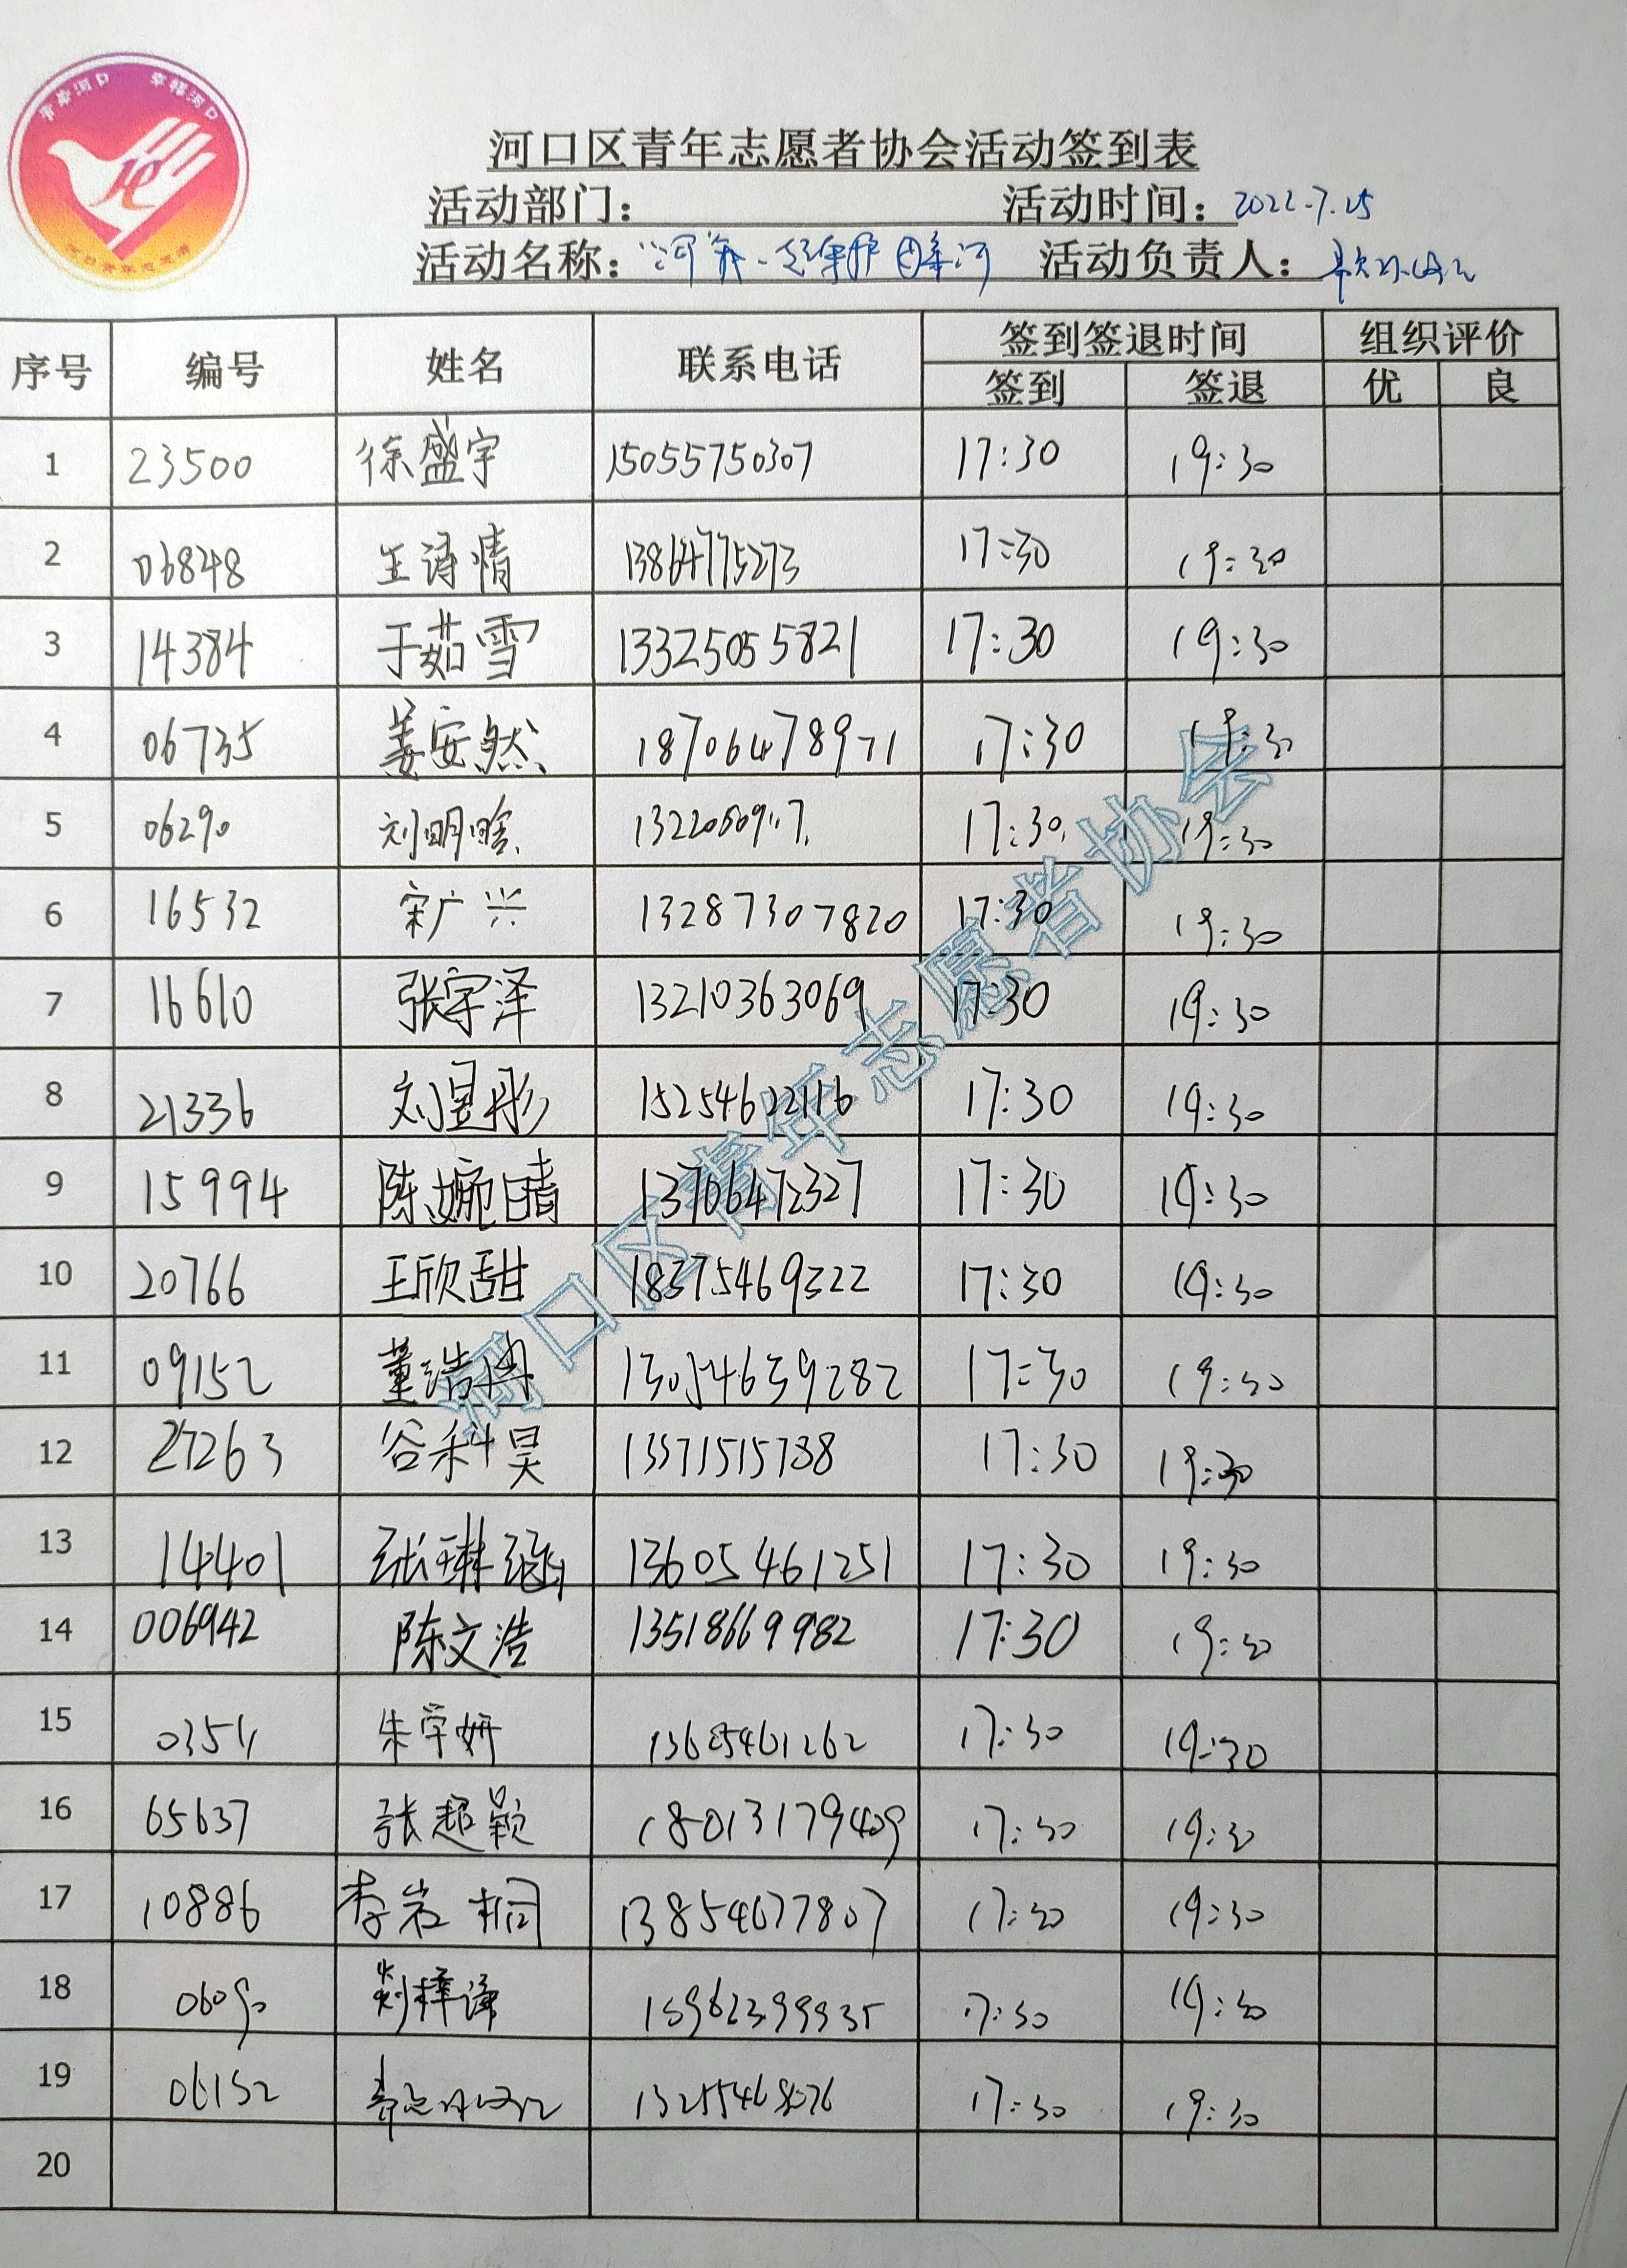 青春河口 幸福河口
河口区青年志愿者协会活动签到表
活动部门： 活动时间：2022.7.25
活动名称： 活动负责人：
序号 编号 姓名 联系电话 签到签退时间 组织评价
签到 签退 优 良
1 23500 徐盛宇 15055750307 17:30 19:30
2 06848 王诗情 13864775273 17:30 19:30
3 14384 于茹雪 13325055821 17:30 19:30
4 06735 姜安然 18706478971 17:30 19:30
5 06290 刘明晗 17:30 19:30
6 16532 宋广兴 13287307820 17:30 19:30
7 16610 张宇泽 13210363069 17:30 19:30
8 21336 刘昱彤 15254622116 17:30 19:30
9 15994 陈婉晴 13706472327 17:30 19:30
10 20766 王欣甜 18375469322 17:30 19:30
11 09152 董浩冉 17:30 19:30
12 27263 谷科昊 13371515738 17:30 19:30
13 14401 张琳涵 13605461251 17:30 19:30
14 006942 陈文浩 13518669982 17:30 19:30
15 朱宇妍 17:30 19:30
16 65637 张超颖 18013179409 17:30 19:30
17 10886 李岩桐 13854677807 17:30 19:30
18 17:30 19:30
19 06152 17:30 19:30
20
河口区青年志愿者协会